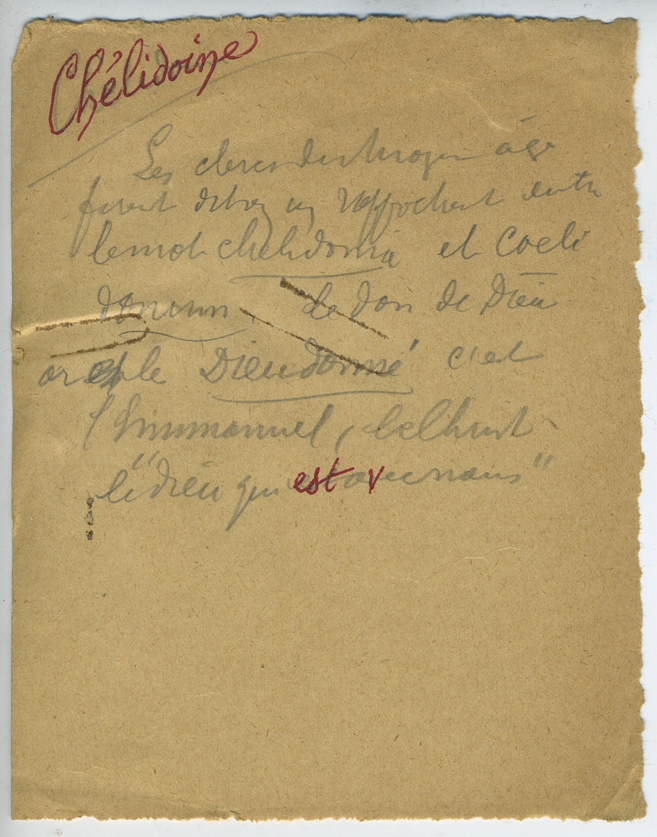 Chélidoine
Les clercs du moyen âge
firent de bon un rapprochent entre
le mot chelidonia et Coeli
donum. Le don de Dieu
or le Dieudonné c'est
l'Emmanuel, le Christ
le "dieu qui est avec nous"